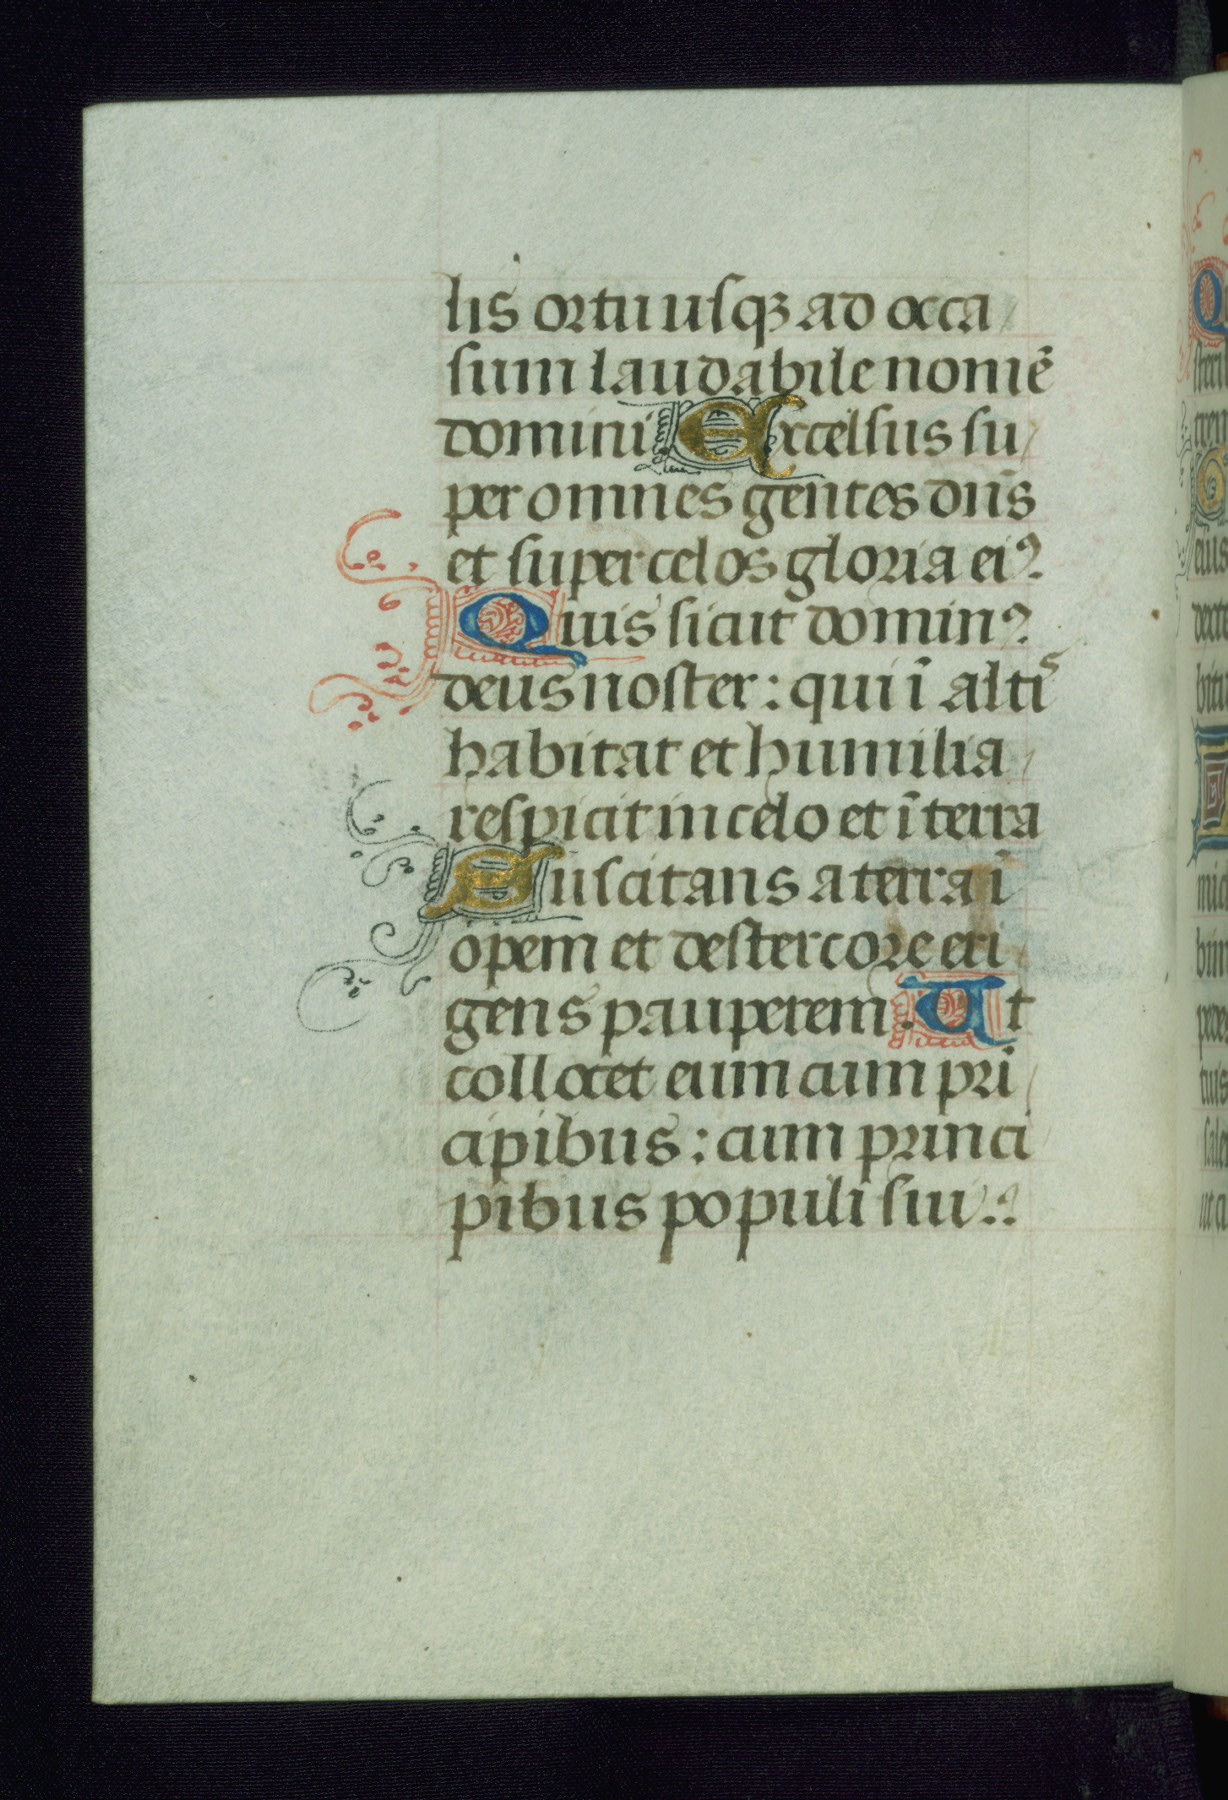 lis ortu usqꝫ ad occa/
sum laudabile nomē
domini. Excelsus su/
per omnes gentes dn̄s
et super celos gloria eiꝰ.
Quis sicut dominꝰ
deus noster: qui ī altīs
habitat et humilia/
respicit in celo et ī terra
Suscitans a terra ī
opem et de stercore eri
gens pauperem. Ut
collocet eum cum pri̅/
cipibus: cum princi
pibus populi sui.